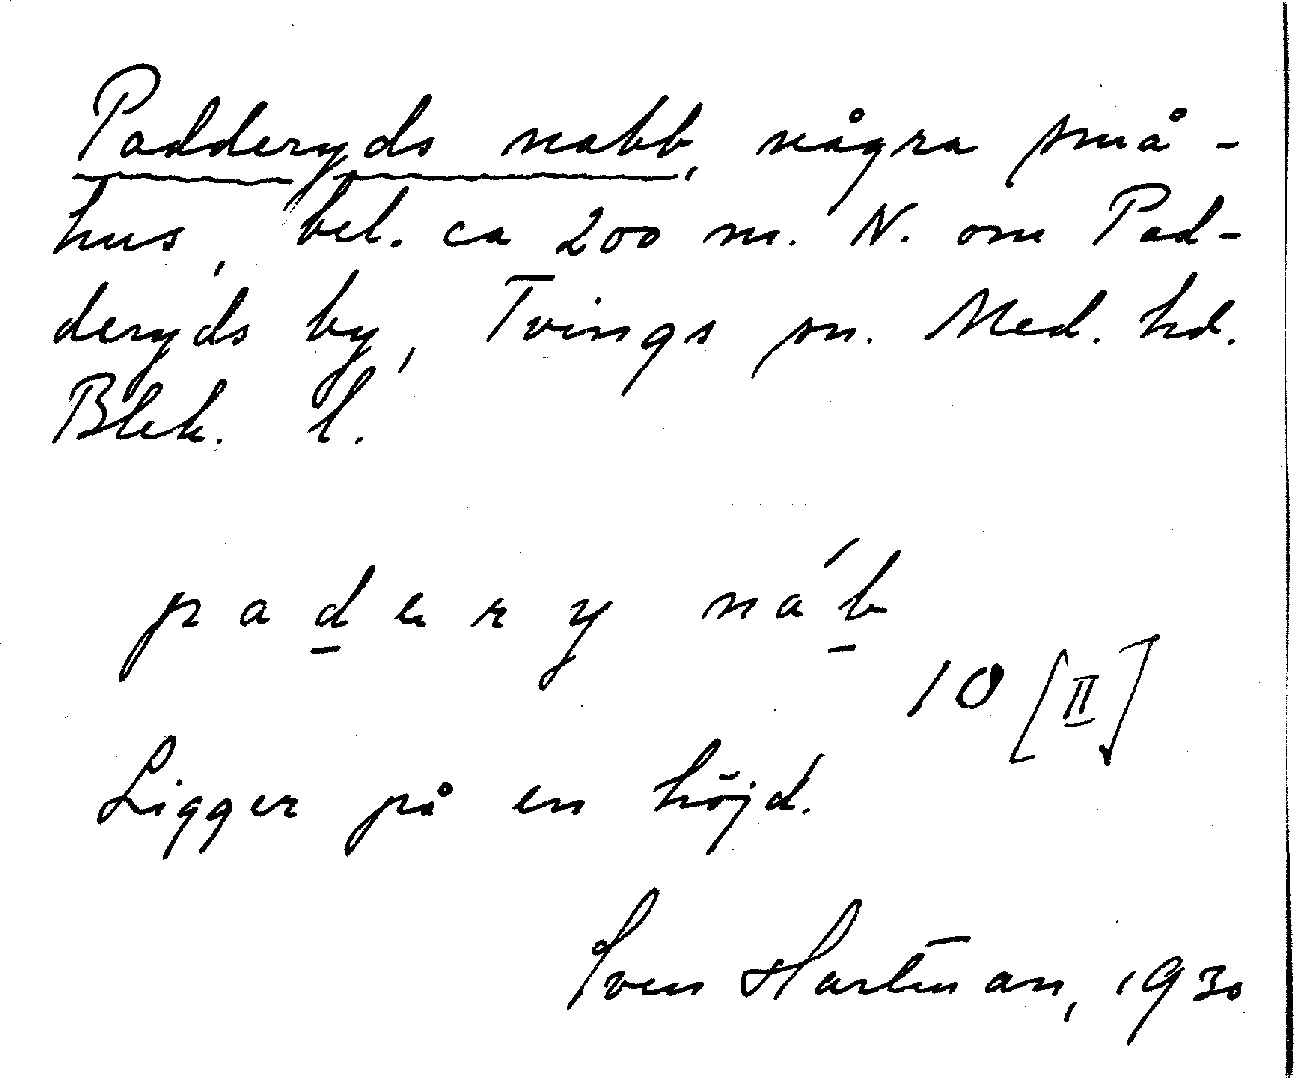 Padderyds nabb, några små-
hus, bel. ca 200 m. N. om Pad-
deryds by, Tvings sn. Med. hd.
Blek. l.
padery náb
10 [II]
Ligger på en höjd.
Sven Hartman, 1930